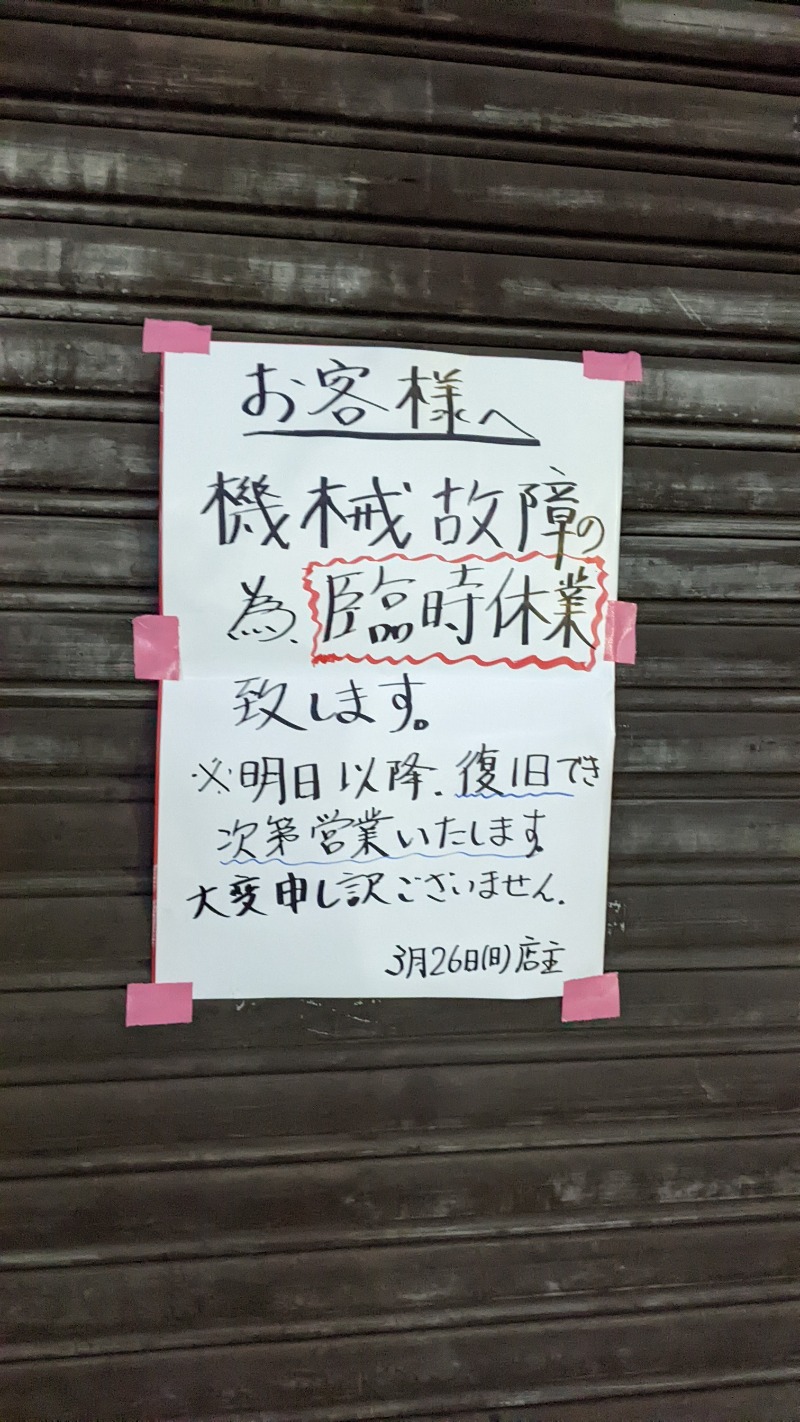 お客様へ
機械故障の
為、臨時休業
致します。
※明日以降、復旧でき
次第営業いたします
大変申し訳ございません。
3月26日(日)店主